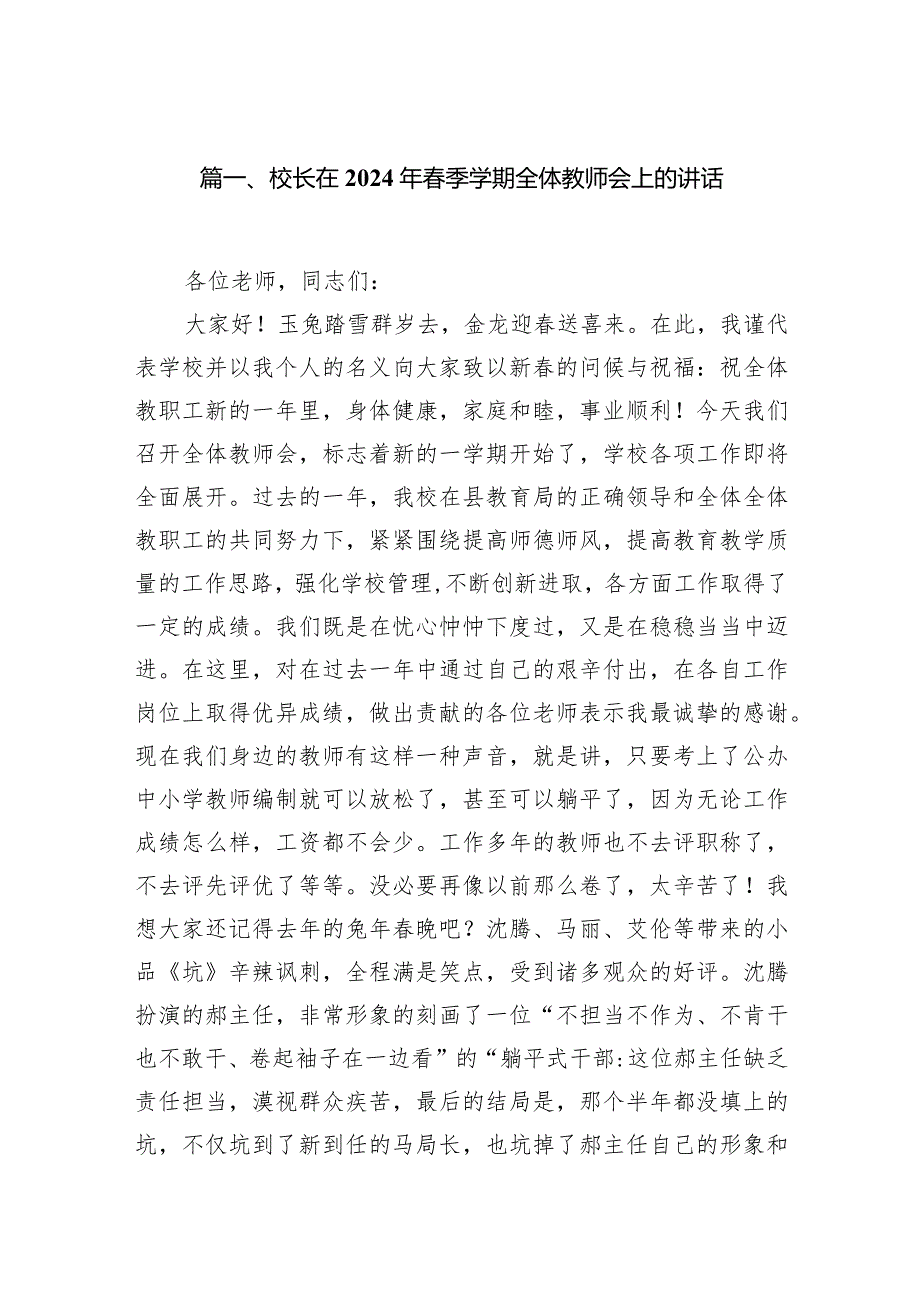 篇一、校长在 2024 年春季学期全体教师会上的讲话
各位老师，同志们：
大家好！玉兔踏雪群岁去，金龙迎春送喜来。在此，我谨代
表学校并以我个人的名义向大家致以新春的问候与祝福：祝全体
教职工新的一年里，身体健康，家庭和睦，事业顺利！今天我们
召开全体教师会，标志着新的一学期开始了，学校各项工作即将
全面展开。过去的一年，我校在县教育局的正确领导和全体全体
教职工的共同努力下，紧紧围绕提高师德师风，提高教育教学质
量的工作思路，强化学校管理,不断创新进取，各方面工作取得了
一定的成绩。我们既是在忧心忡忡下度过，又是在稳稳当当中迈
进。在这里，对在过去一年中通过自己的艰辛付出，在各自工作
岗位上取得优异成绩，做出贡献的各位老师表示我最诚挚的感谢。
现在我们身边的教师有这样一种声音，就是讲，只要考上了公办
中小学教师编制就可以放松了，甚至可以躺平了，因为无论工作
成绩怎么样，工资都不会少。工作多年的教师也不去评职称了，
不去评先评优了等等。没必要再像以前那么卷了，太辛苦了！我
想大家还记得去年的兔年春晚吧？沈腾、马丽、艾伦等带来的小
品《坑》辛辣讽刺，全程满是笑点，受到诸多观众的好评。沈腾
扮演的郝主任，非常形象的刻画了一位“不担当不作为、不肯干
也不敢干、卷起袖子在一边看”的“躺平式干部:这位郝主任缺乏
责任担当，漠视群众疾苦，最后的结局是，那个半年都没填上的
坑，不仅坑到了新到任的马局长，也坑掉了郝主任自己的形象和